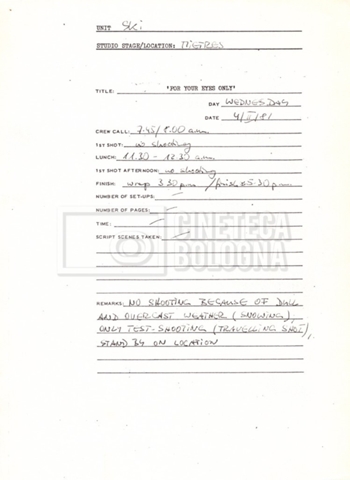 UNIT Ski
STUDIO STAGE/LOCATION:
TITLE: 'FOR YOUR EYES ONLY'
DAY WEDNESDAY
DATE 4/II/81
CREW CALL: 7.45/8.00 a.m.
1ST SHOT: no shooting
LUNCH: 11.30 - 12.30 a.m.
1ST SHOT AFTERNOON: no shooting
FINISH: wrap 3.30 p.m. / 5.30 p.m.
NUMBER OF SET-UPS: —
NUMBER OF PAGES: —
TIME: —
SCRIPT SCENES TAKEN: —
CINETECA
BOLOGNA
REMARKS: NO SHOOTING BECAUSE OF DULL
AND OVERCAST WEATHER (SNOWING),
ONLY TEST-SHOOTING (TRAVELLING SHOT),
STAND BY ON LOCATION